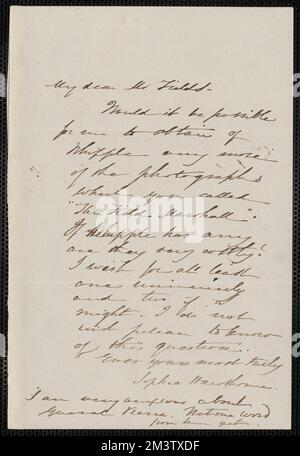 My dear Mr Fields -
Would it be possible
for me to obtain of
Whipple any more
of the photographs
which you called
"The Field Marshall".
If Whipple has any
are they very costly?
I wish for at least
one
and two if I
might. I do not
wish to know
of this question.
Ever yours most truly
Sophia Hawthorne.
I am very anxious about
General Pierce. Not one word
from him yet.
alamy